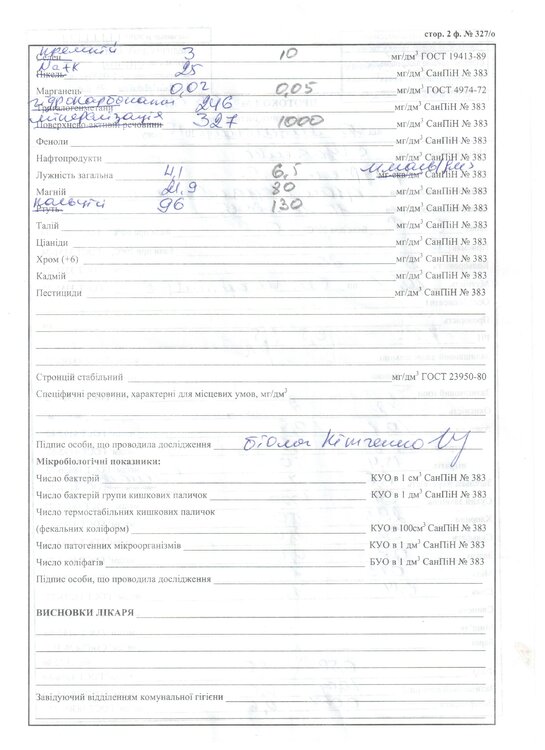 стор. 2 ф. № 327/о
кремній
Селен 3 10 мг/дм³ ГОСТ 19413-89
Na+K
Нікель 25 мг/дм³ СанПіН № 383
Марганець 0,02 0,05 мг/дм³ ГОСТ 4974-72
гідрокарбонати 246
Тригалогенметани мг/дм³ СанПіН № 383
мінералізація
Поверхнево активні речовини 327 1000 мг/дм³ СанПіН № 383
Феноли мг/дм³ СанПіН № 383
Нафтопродукти мг/дм³ СанПіН № 383
ммоль/дм³
Лужність загальна 4,1 6,5 мг-екв/дм³ СанПіН № 383
Магній 21,9 80 мг/дм³ СанПіН № 383
кальцій
Ртуть 96 130 мг/дм³ СанПіН № 383
Талій мг/дм³ СанПіН № 383
Ціаніди мг/дм³ СанПіН № 383
Хром (+6) мг/дм³ СанПіН № 383
Кадмій мг/дм³ СанПіН № 383
Пестициди мг/дм³ СанПіН № 383
Стронцій стабільний мг/дм³ ГОСТ 23950-80
Специфічні речовини, характерні для місцевих умов, мг/дм³
Підпис особи, що проводила дослідження біолог
Мікробіологічні показники:
Число бактерій КУО в 1 см³ СанПіН № 383
Число бактерій групи кишкових паличок КУО в 1 дм³ СанПіН № 383
Число термостабільних кишкових паличок
(фекальних коліформ) КУО в 100см³ СанПіН № 383
Число патогенних мікроорганізмів КУО в 1 дм³ СанПіН № 383
Число коліфагів БУО в 1 дм³ СанПіН № 383
Підпис особи, що проводила дослідження
ВИСНОВКИ ЛІКАРЯ
Завідуючий відділенням комунальної гігієни